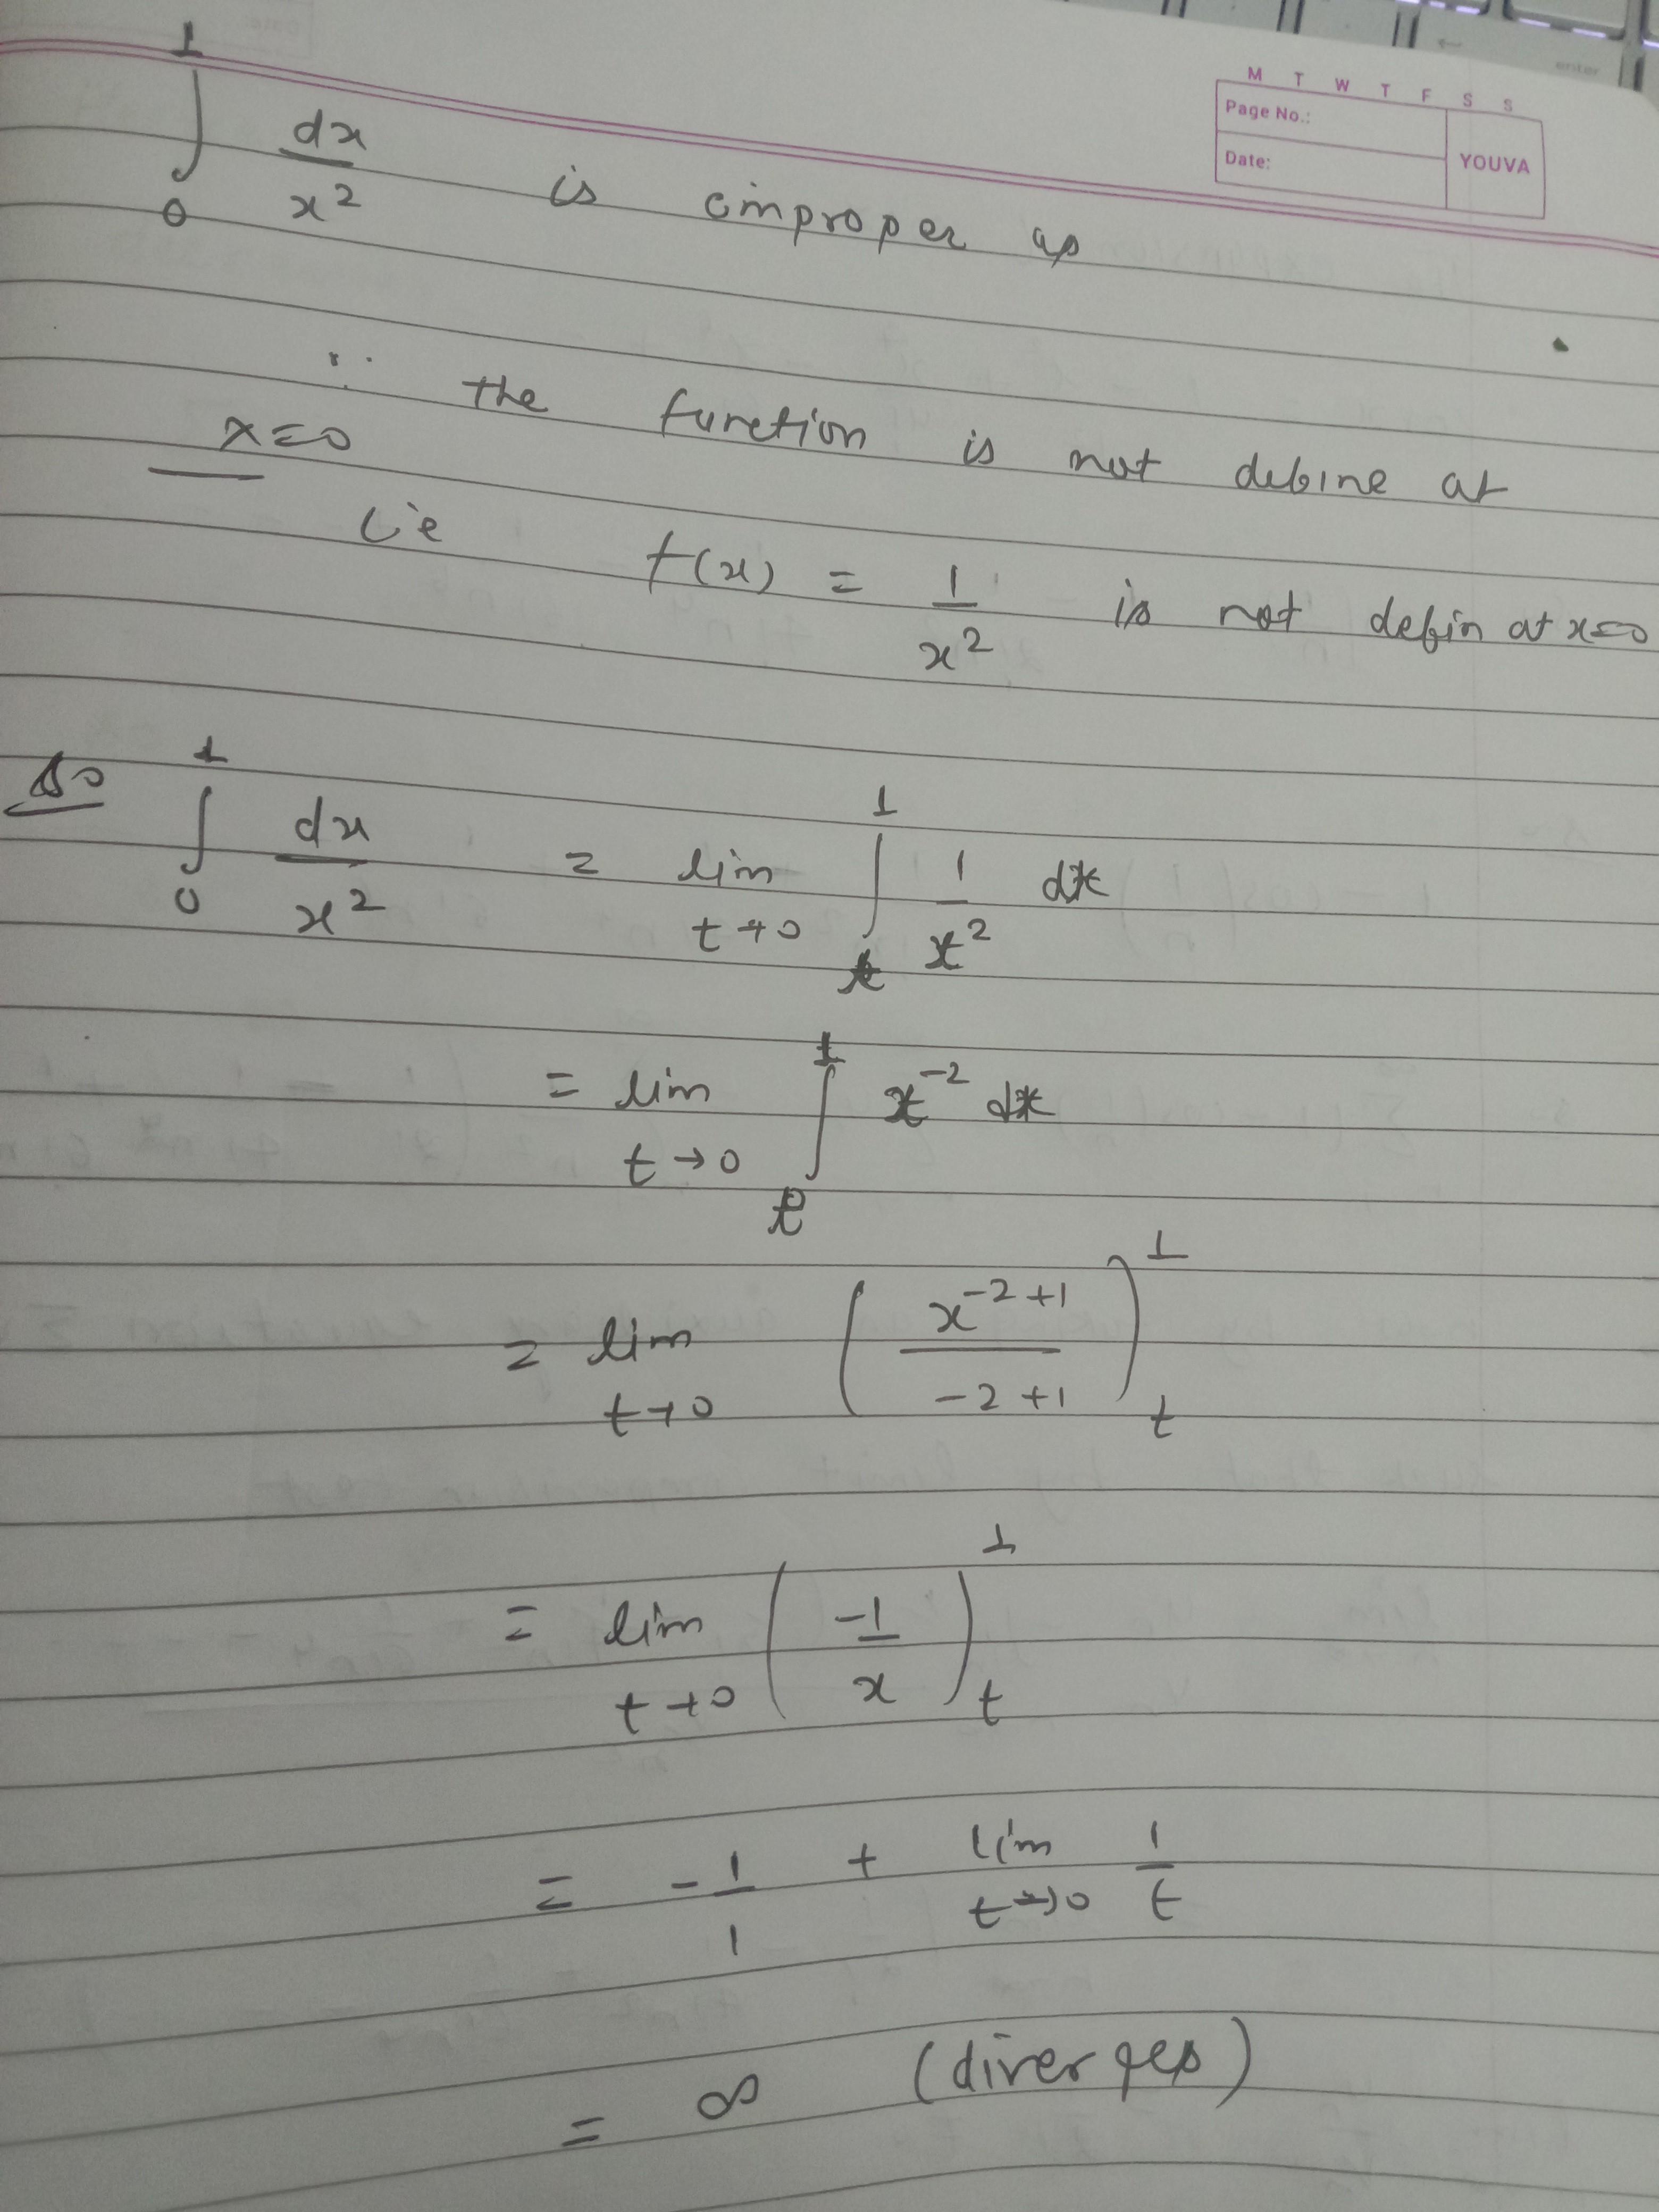 enter
M T W T F S S
Page No.:
Date:
YOUVA
∫₀¹ dx/x² is improper as
∵ the function is not define at
x=0
i.e f(x) = 1/x² is not defin at x=0
So ∫₀¹ dx/x² = lim t→0 ∫ₜ¹ 1/x² dx
= lim t→0 ∫ₜ¹ x⁻² dx
= lim t→0 (x⁻²⁺¹/-2+1)ₜ¹
= lim t→0 (-1/x)ₜ¹
= -1/1 + lim t→0 1/t
= ∞ (diverges)